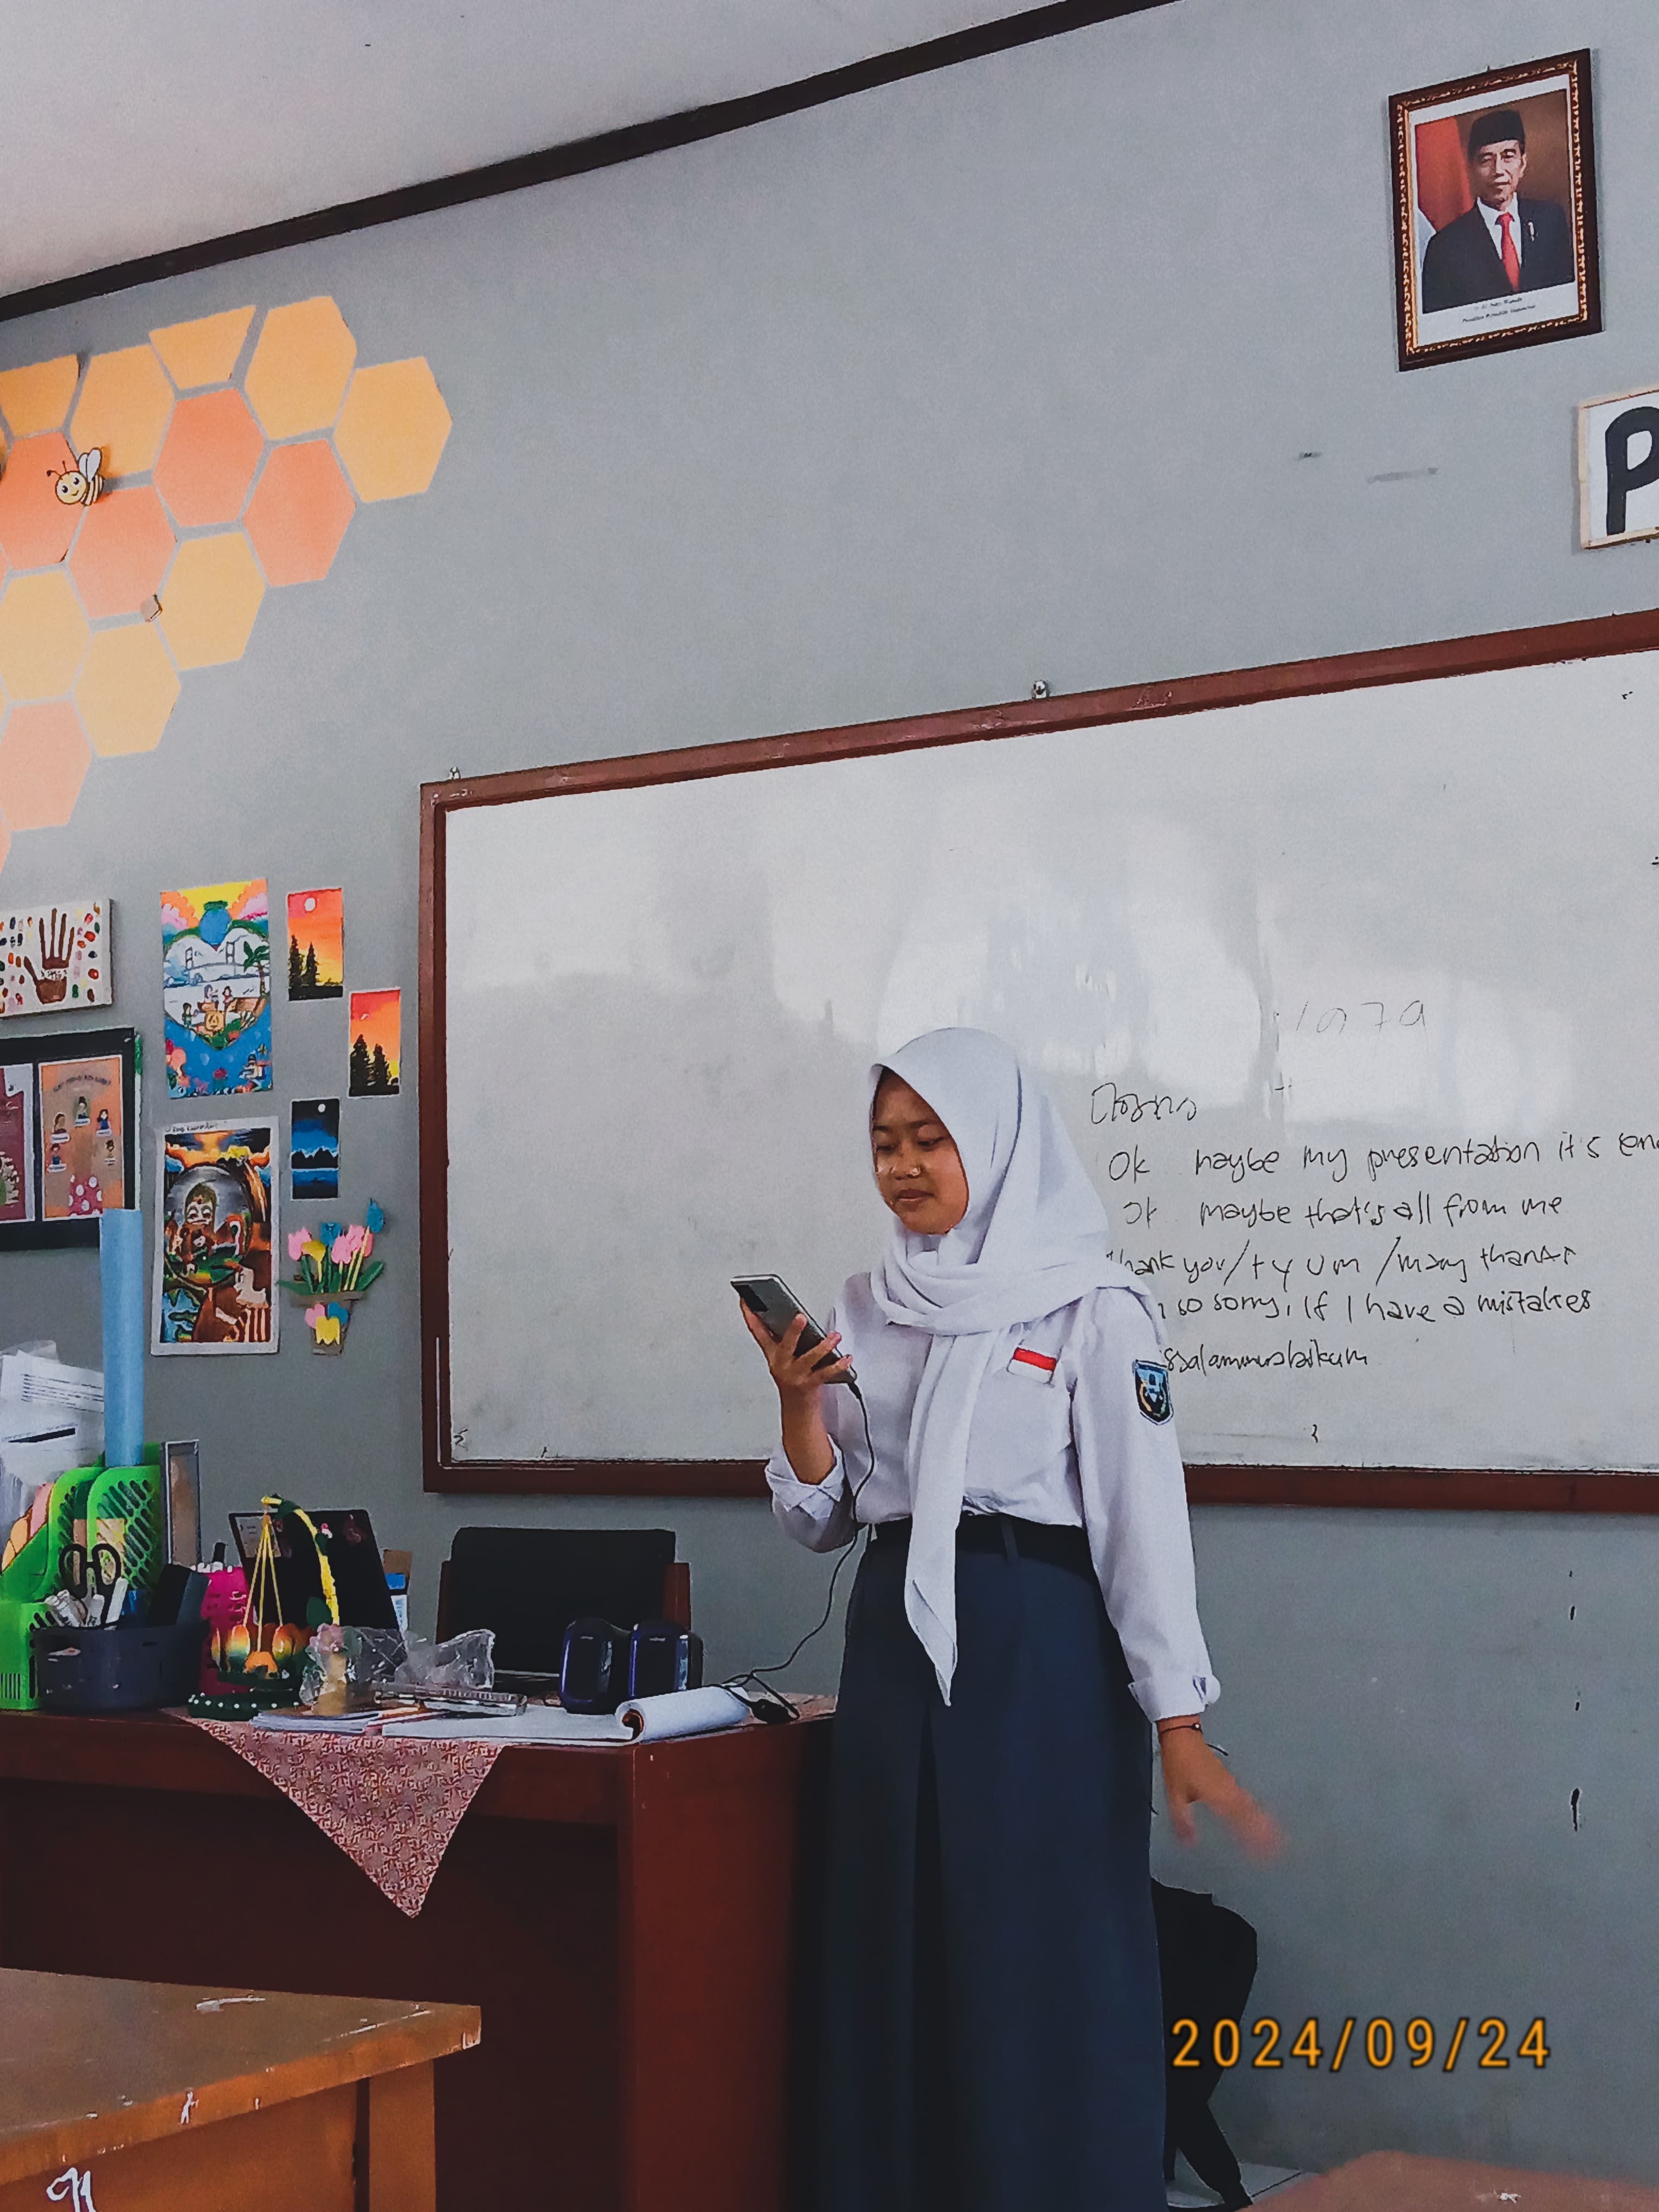 P
Ok maybe my presentation it's
Ok maybe that's all from me
thank you/ty um/many thanks
so sorry, If I have a mistakes
ssalammualaikum
2024/09/24